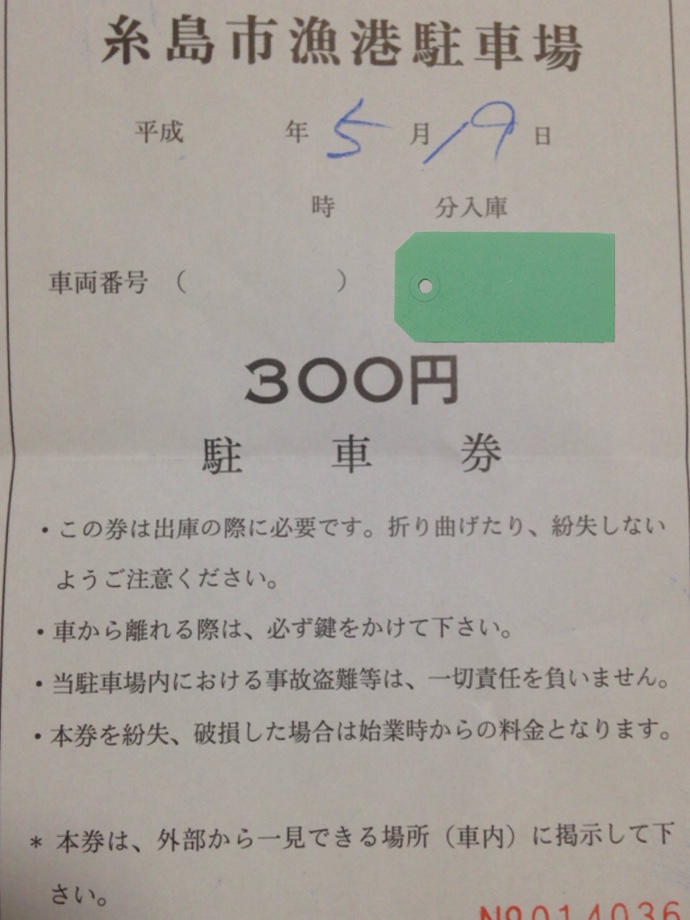 糸島市漁港駐車場
平成 年 5 月 19 日
時 分入庫
車両番号 ( )
300円
駐 車 券
・この券は出庫の際に必要です。折り曲げたり、紛失しない
ようご注意ください。
・車から離れる際は、必ず鍵をかけて下さい。
・当駐車場内における事故盗難等は、一切責任を負いません。
・本券を紛失、破損した場合は始業時からの料金となります。
* 本券は、外部から一見できる場所（車内）に掲示して下
さい。
№014036